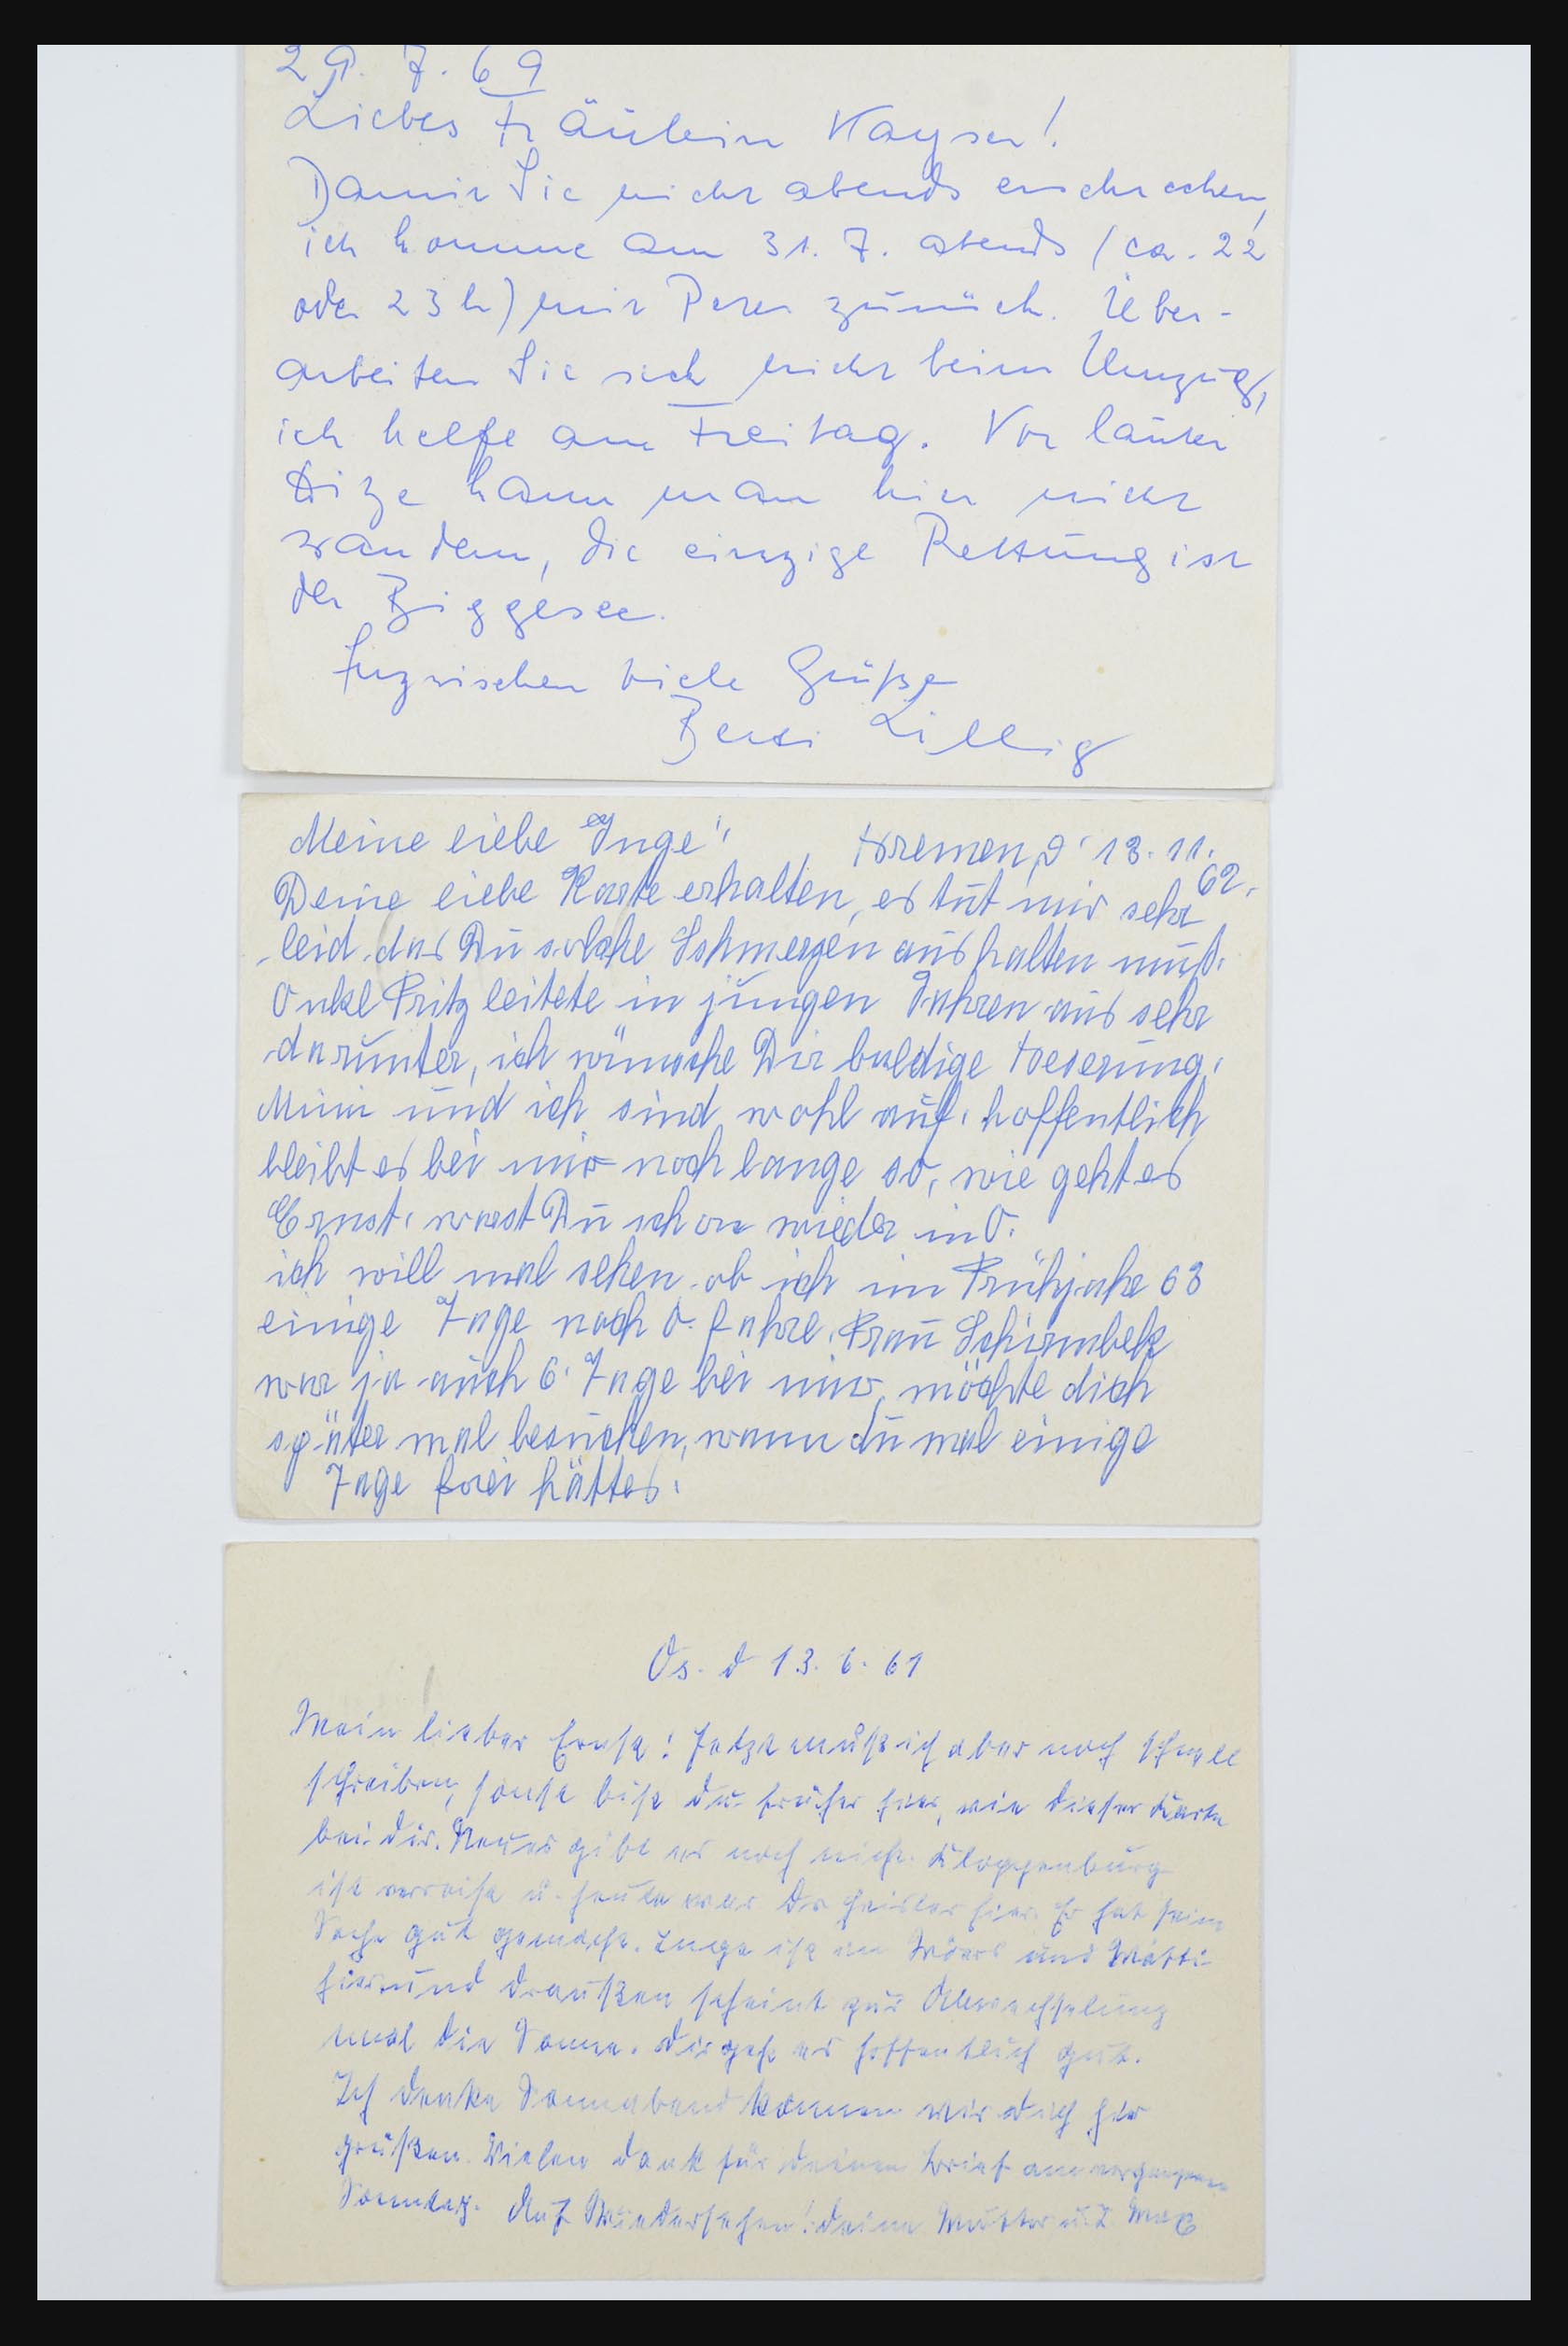 29. 7. 69
Liebes Fräulein Kayser!
Damit Sie nicht abends erschrecken,
ich komme am 31. 7. abends (ca. 22
oder 23 h) mit Peter zurück. Über-
arbeiten Sie sich nicht beim Umzug,
ich helfe am Freitag. Vor lauter
Hitze kann man hier nicht
wandern, die einzige Rettung ist
der Biggesee.
Inzwischen viele Grüße
Lillig
Meine liebe Inge! Bremen, d 13. 11.
62.
Deine liebe Karte erhalten, es tut mir sehr
leid das Du solche Schmerzen aushalten muß.
Onkel Fritz leitete in jungen Jahren aus sehr
darunter, ich wünsche Dir baldige Beserung.
und ich sind wohl auf. hoffentlich
bleibt es bei mir noch lange so, wie geht es
Ernst. warst Du schon wieder in O.
ich will mal sehen ob ich im Frühjahr 63
einige Tage nach O. fahre. Frau Schirmbek
war ja auch 6. Tage bei mir, möchte dich
später mal besuchen, wann du mal einige
Tage frei hättes.
Os. d 13. 6. 61
Mein lieber Ernst! Jetzt muß ich aber noch schnell
schreiben, sonst bist du früher hier, wie dieser Karte
bei dir. Neues gibt es noch nicht. Kloppenburg
ist verreist u. heute war Dr hier. Er hat sein
Sache gut gemacht. Inge ist und
hier und draußen scheint zur Abwechselung
mal die Sonne. Dir geht es hoffentlich gut.
Ich denke Sonnabend können wir dich hier
grüßen. Vielen Dank für deinen Brief am vergangenen
Sonntag. Auf Wiedersehen! deine Mutter u.